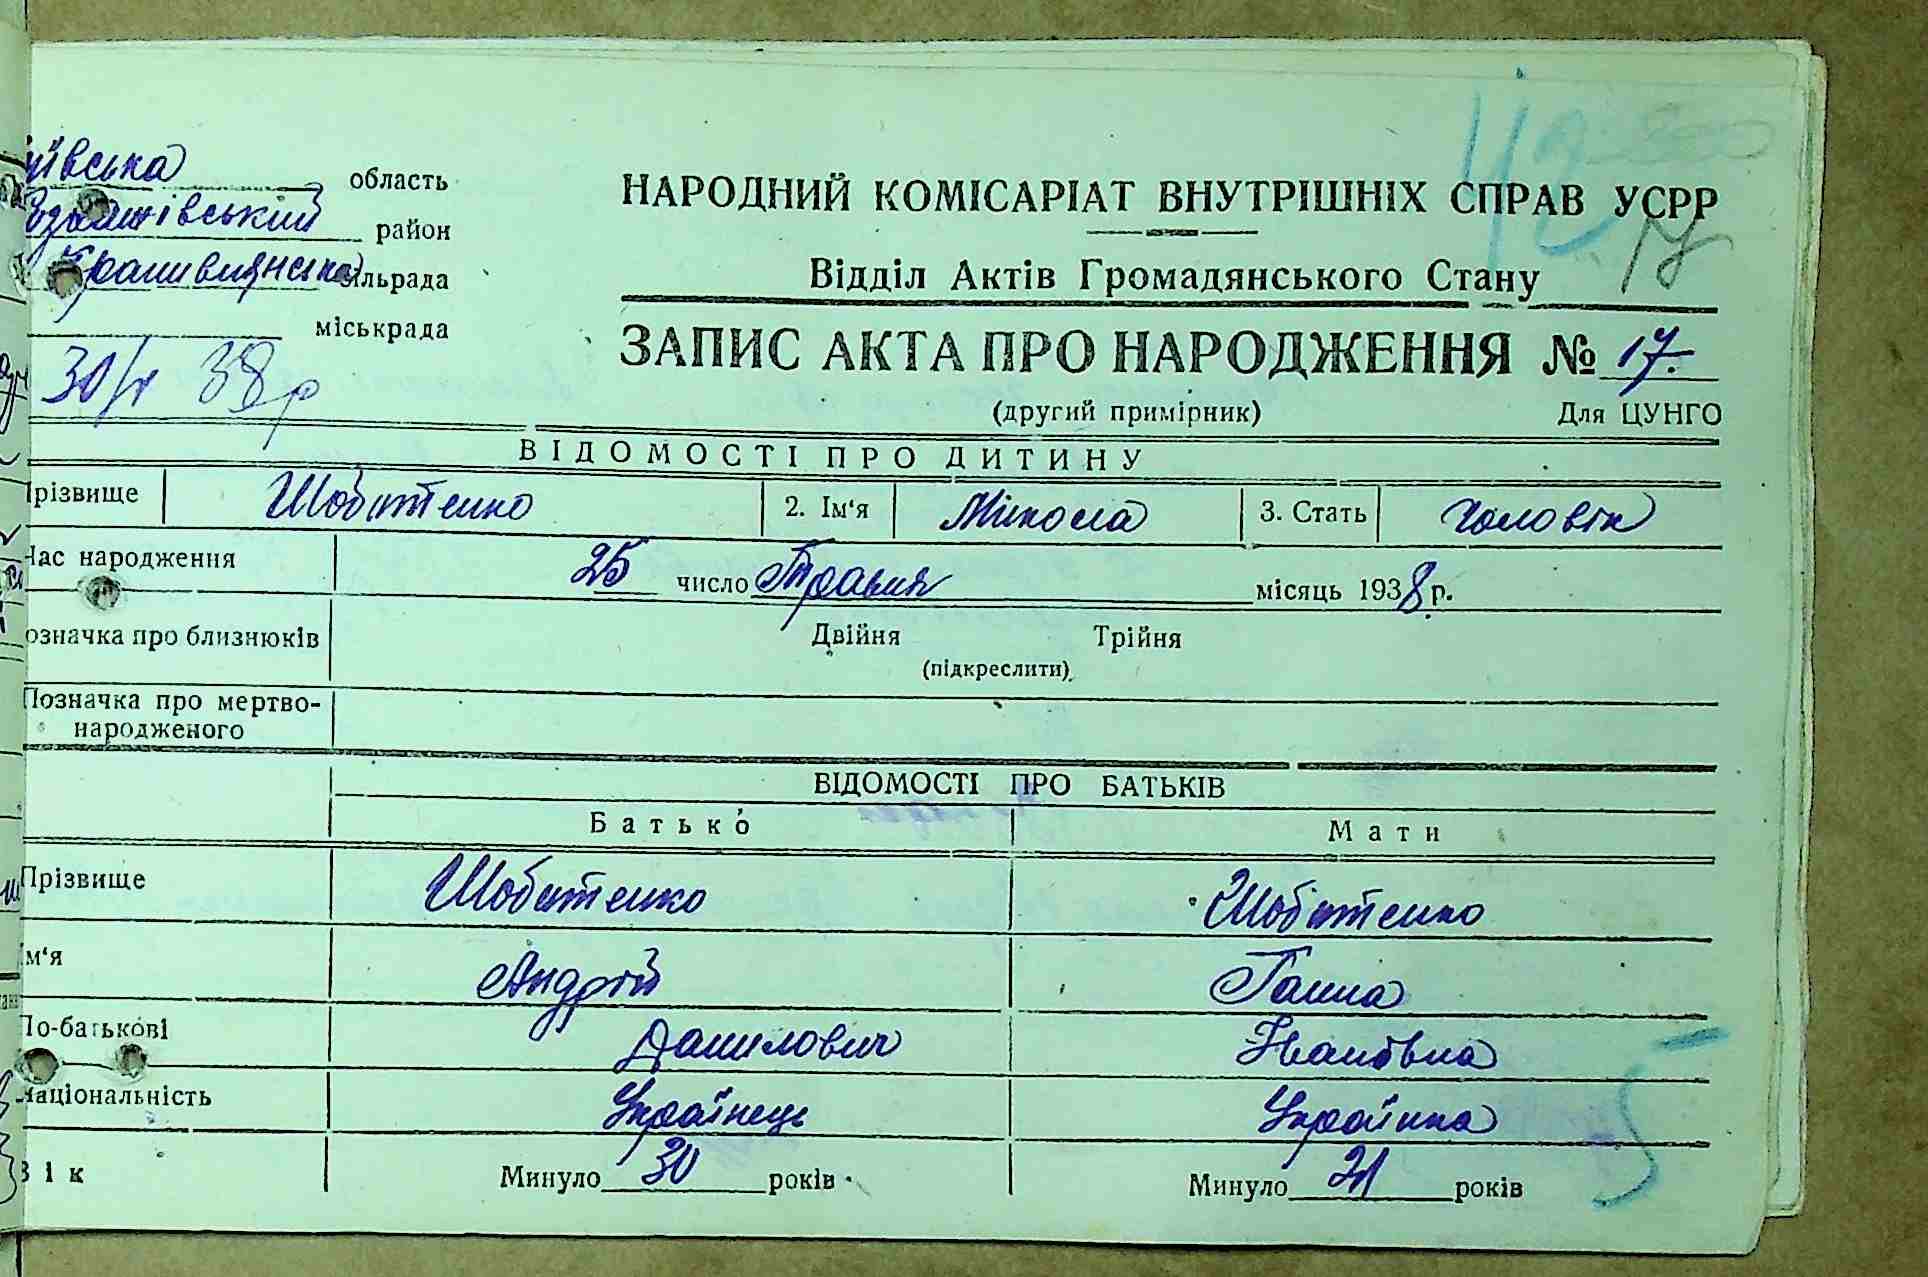 ївська область
район
сільрада
міськрада
30/V 38р
42
17
НАРОДНИЙ КОМІСАРІАТ ВНУТРІШНІХ СПРАВ УСРР
Відділ Актів Громадянського Стану
ЗАПИС АКТА ПРО НАРОДЖЕННЯ № 17.
(другий примірник) Для ЦУНГО
ВІДОМОСТІ ПРО ДИТИНУ
різвище Шобитенко 2. Ім'я Микола 3. Стать чоловік
Час народження 25 число Травня місяць 1938 р.
означка про близнюків Двійня Трійня
(підкреслити)
Позначка про мертво-
народженого
ВІДОМОСТІ ПРО БАТЬКІВ
Батько Мати
Прізвище Шобитенко Шобитенко
Ім'я Андрій Ганна
По-батькові Данилович Івановна
Національність Українець Українка
Вік Минуло 30 років Минуло 21 років